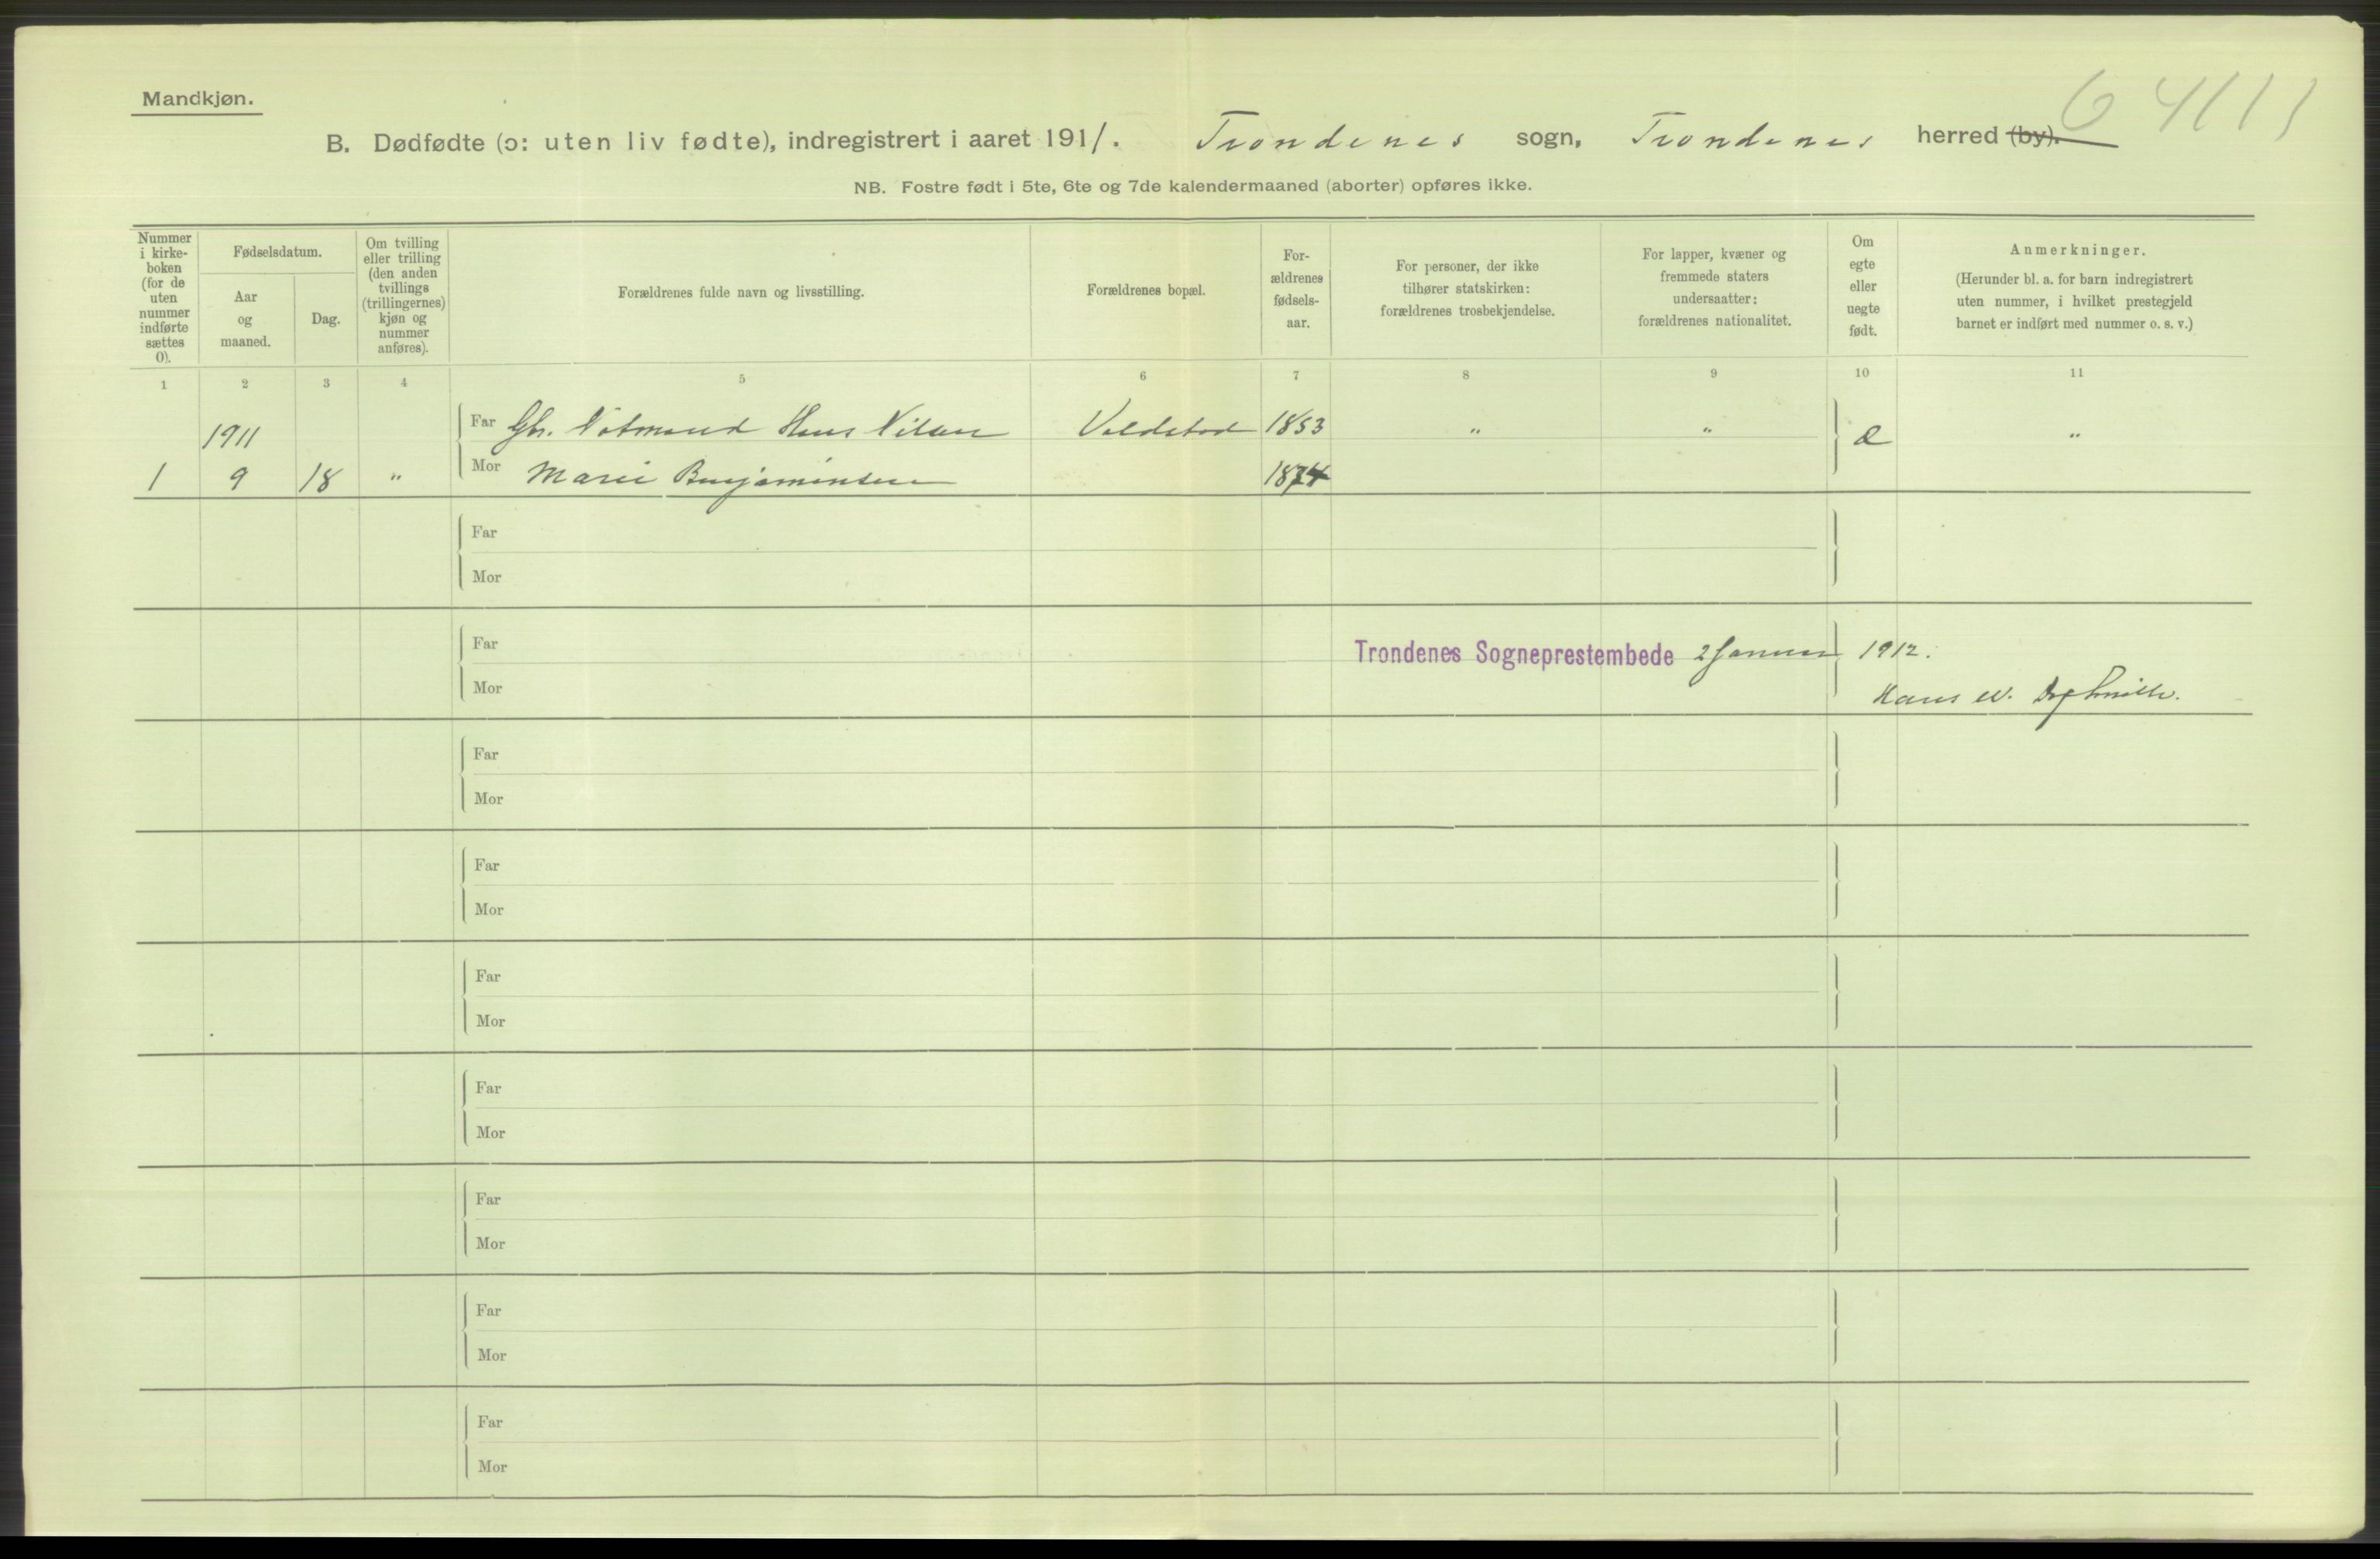 Mandkjøn.
6 4111
B. Dødfødte (ɔ: uten liv fødte), indregistrert i aaret 1911. Trondenes sogn, Trondenes herred (by).
NB. Fostre født i 5te, 6te og 7de kalendermaaned (aborter) opføres ikke.
Nummer
i kirke-
boken
(for de
uten
nummer
indførte
sættes
0).
Fødselsdatum.
Aar
og
maaned.
Dag.
Om tvilling
eller trilling
(den anden
tvillings
(trillingernes)
kjøn og
nummer
anføres).
Forældrenes fulde navn og livsstilling.
Forældrenes bopæl.
For-
ældrenes
fødsels-
aar.
For personer, der ikke
tilhører statskirken:
forældrenes trosbekjendelse.
For lapper, kvæner og
fremmede staters
undersaatter:
forældrenes nationalitet.
Om
egte
eller
uegte
født.
Anmerkninger.
(Herunder bl. a. for barn indregistrert
uten nummer, i hvilket prestegjeld
barnet er indført med nummer o. s. v.)
1 2 3 4 5 6 7 8 9 10 11
1911 Far Gbr. Notmand Hans Nilsen 1853 " " "
1 9 18 " Mor Marie Benjaminsen 1874
Far
Mor
Far Trondenes Sogneprestembede 2 Januar 1912.
Mor Hans
Far
Mor
Far
Mor
Far
Mor
Far
Mor
Far
Mor
Far
Mor
Far
Mor